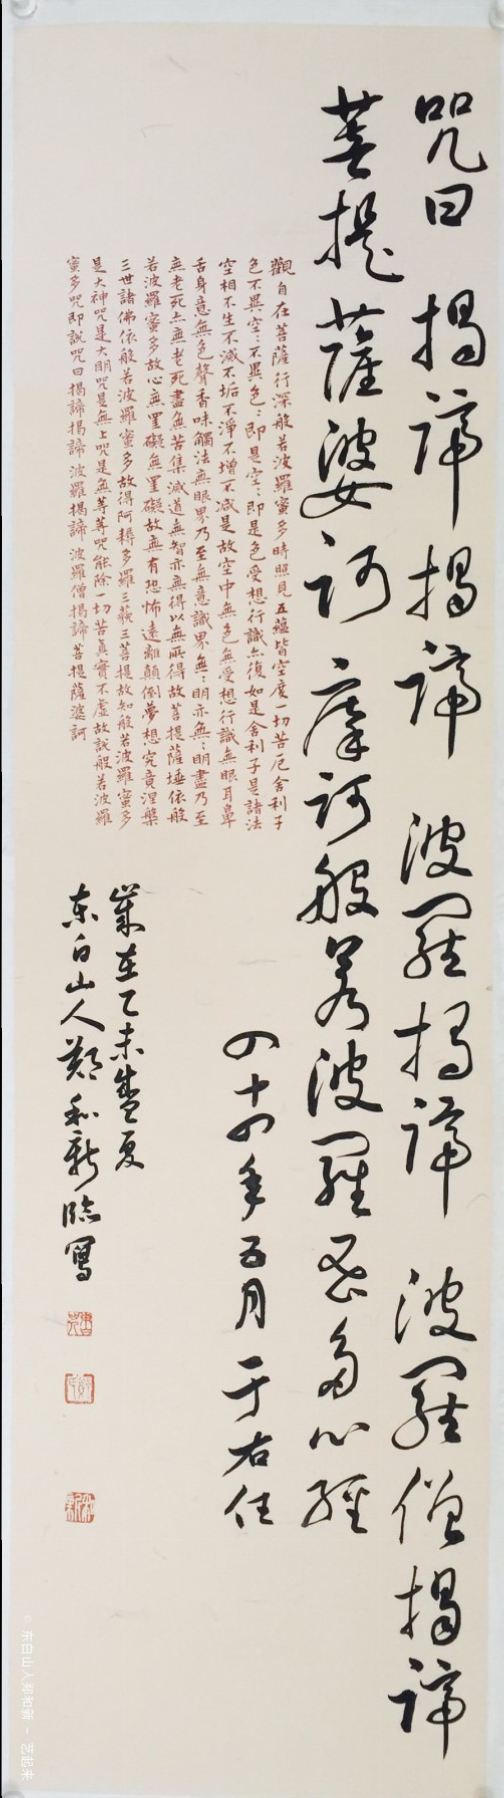 咒曰 揭諦揭諦 波羅揭諦 波羅僧揭諦
菩提薩婆訶 摩訶般若波羅密多心經
四十四年五月于右任
觀自在菩薩行深般若波羅蜜多時照見五蘊皆空度一切苦厄舍利子
色不異空〻不異色〻即是空〻即是色受想行識亦復如是舍利子是諸法
空相不生不滅不垢不淨不增不減是故空中無色無受想行識無眼耳鼻
舌身意無色聲香味觸法無眼界乃至無意識界無〻明亦無〻明盡乃至
無老死亦無老死盡無苦集滅道無智亦無得以無所得故菩提薩埵依般
若波羅蜜多故心無罣礙無罣礙故無有恐怖遠離顛倒夢想究竟涅槃
三世諸佛依般若波羅蜜多故得阿耨多羅三藐三菩提故知般若波羅蜜多
是大神咒是大明咒是無上咒是無等等咒能除一切苦真實不虛故說般若波羅
蜜多咒即說咒曰揭諦揭諦 波羅揭諦 波羅僧揭諦 菩提薩婆訶
歲在乙未盛夏
东白山人鄭和新臨寫
©东白山人郑和新 - 艺起来